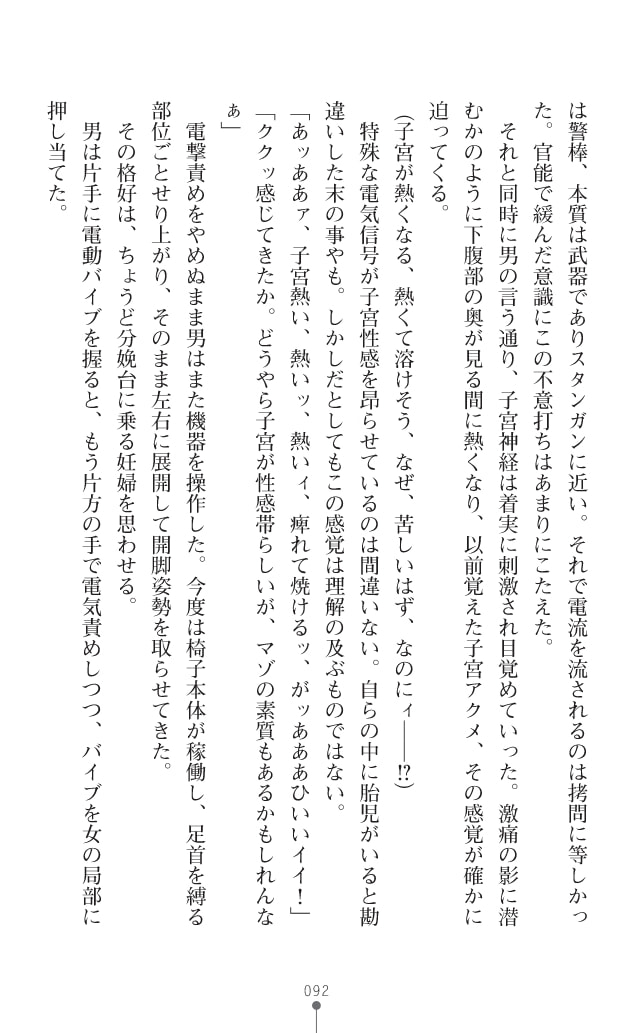 は警棒、本質は武器でありスタンガンに近い。それで電流を流されるのは拷問に等しかっ
た。官能で緩んだ意識にこの不意打ちはあまりにこたえた。
それと同時に男の言う通り、子宮神経は着実に刺激され目覚めていった。激痛の影に潜
むかのように下腹部の奥が見る間に熱くなり、以前覚えた子宮アクメ、その感覚が確かに
迫ってくる。
(子宮が熱くなる、熱くて溶けそう、なぜ、苦しいはず、なのにィ――!?)
特殊な電気信号が子宮性感を昂らせているのは間違いない。自らの中に胎児がいると勘
違いした末の事やも。しかしだとしてもこの感覚は理解の及ぶものではない。
「あッああァ、子宮熱い、熱いッ、熱いィ、痺れて焼けるッ、がッあああひいいイイ!」
「ククッ感じてきたか。どうやら子宮が性感帯らしいが、マゾの素質もあるかもしれんな
ぁ」
電撃責めをやめぬまま男はまた機器を操作した。今度は椅子本体が稼働し、足首を縛る
部位ごとせり上がり、そのまま左右に展開して開脚姿勢を取らせてきた。
その格好は、ちょうど分娩台に乗る妊婦を思わせる。
男は片手に電動バイブを握ると、もう片方の手で電気責めしつつ、バイブを女の局部に
押し当てた。
092